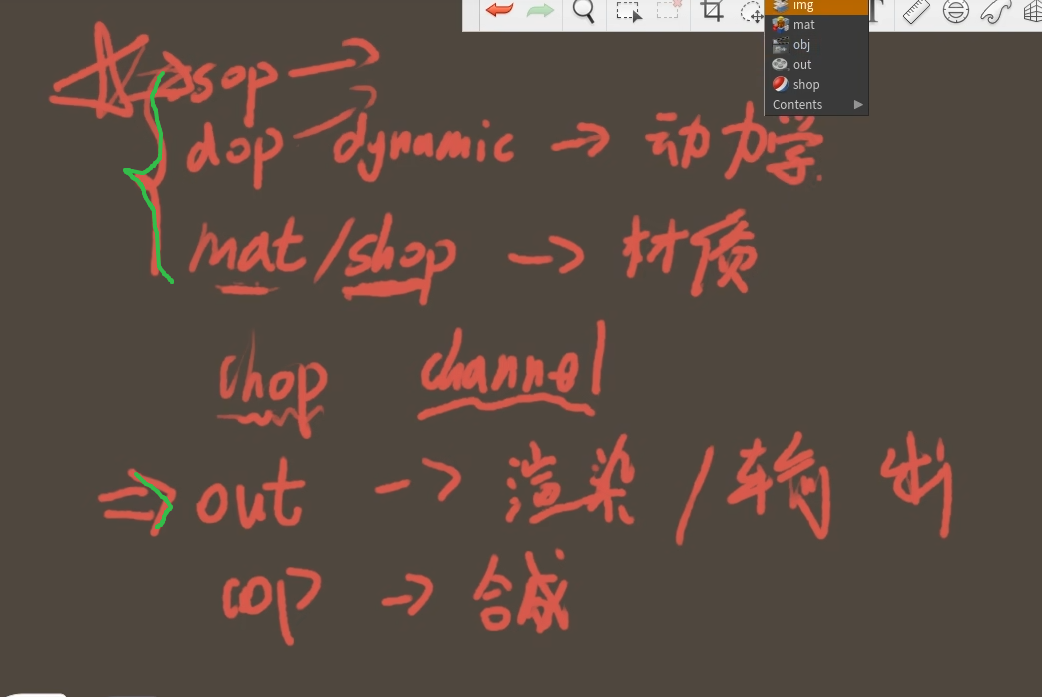 img
mat
obj
out
shop
Contents
sop →
dop → dynamic → 动力学.
mat/shop → 材质
chop channel
⇒ out → 渲染/输出
cop → 合成